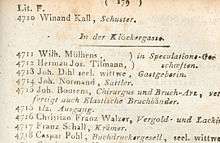 ( 179 )
Lit. F.
4710 Winand Kall, Schuster.
In der Klöckergasse.
4711 Wilh. Mülhens, in Speculations-Ge-
4712 Herman Jos. Tilmann, schäften.
4713 Joh. Dahl seel. wittwe, Gastgeberin.
4714 Joh. Normand, Sattler.
4715 Joh. Boosens, Chirurgus und Bruch-Arz, ver-
fertigt auch Elastische Bruchbänder.
4715 1/2. Ausgang.
4716 Christian Franz Walzer, Vergold- und Lacki
4717 Franz Schall, Krämer.
4718 Caspar Pohl, Buchdruckergesell, seel. wittwe